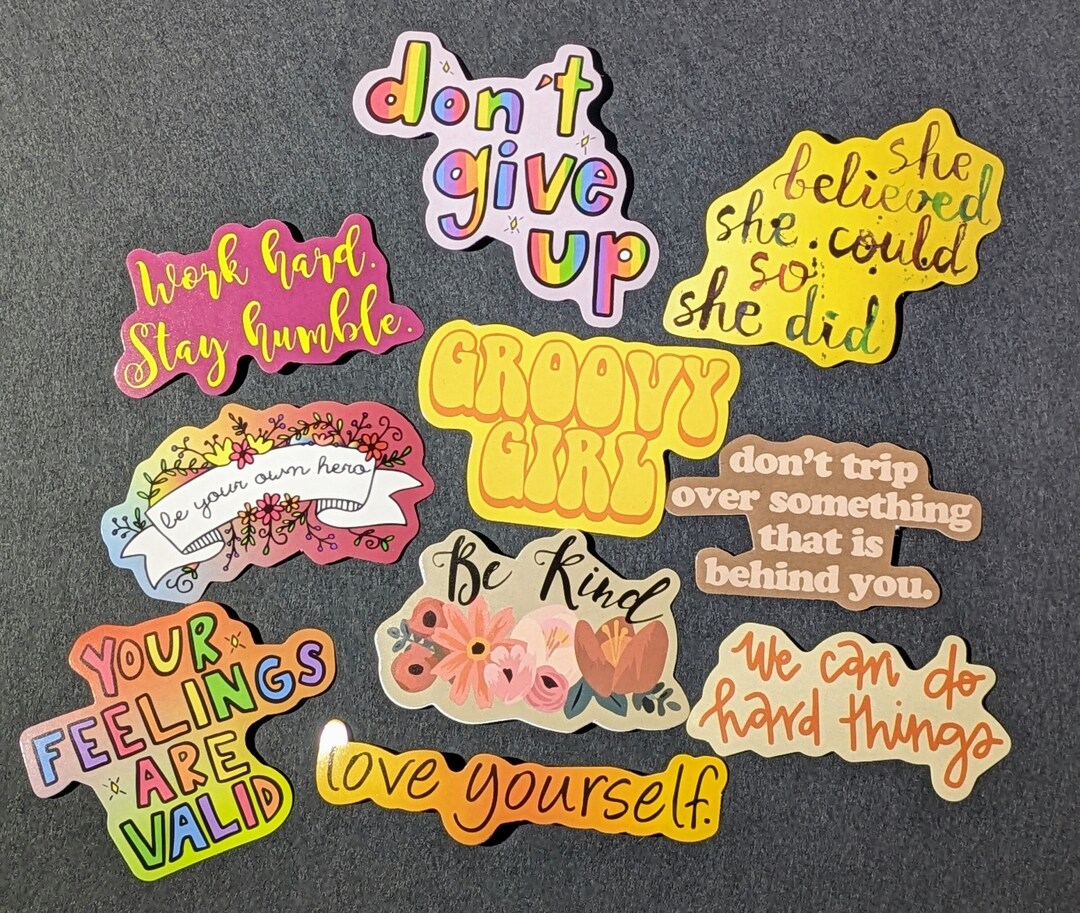 don't
give
up
she
believed
she could
so
she did
Work hard.
Stay humble.
GROOVY
GIRL
be your own hero
don't trip
over something
that is
behind you.
Be Kind
YOUR
FEELINGS
ARE
VALID
We can do
hard things
love yourself.